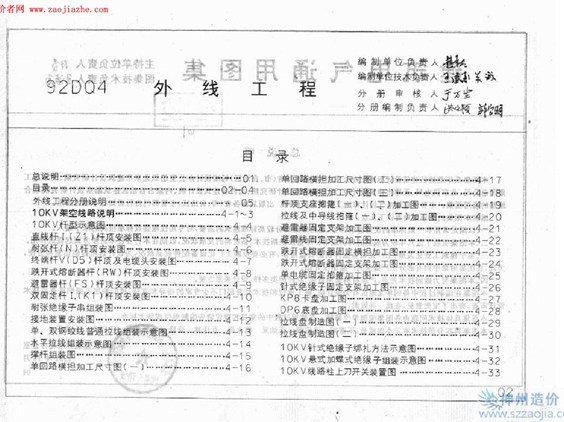 价者网 www.zaojiazhe.com
92DQ4 外线工程
编制单位负责人
编制单位技术负责人
分册审核人
分册编制负责人
目录
总说明 01
目录 02-04
外线工程分册说明 05
10KV架空线路说明 4-1~3
10KV杆型示意图 4-4
直线杆I(Z1)杆顶安装图 4-5
耐张杆(N)杆顶安装图 4-6
终端杆V(D5)杆顶及电缆头安装图 4-7
跌开式熔断器杆(RW)杆顶安装图 4-8
避雷器杆(FS)杆顶安装图 4-9
双固定杆I(K1)杆顶安装图 4-10
耐张绝缘子串组装图 4-11
接地装置安装图 4-12
单、双钢绞线普通拉线组装示意图 4-13
水平拉线组装示意图 4-14
撑杆组装图 4-15
单回路横担加工尺寸图(一) 4-16
单回路横担加工尺寸图(二) 4-17
单回路横担加工尺寸图(三) 4-18
杆顶支座抱箍(一)、(二)加工图 4-19
拉线及中导线抱箍(一)、(二)加工图 4-20
避雷器固定支架加工图 4-21
避雷线固定支架加工图 4-22
跌开式熔断器固定横担加工图 4-23
跌开式熔断器固定支架加工图 4-24
单电缆固定抱箍加工图 4-25
针式绝缘子固定支架加工图 4-26
KP8卡盘加工图 4-27
DP6底盘加工图 4-28
拉线盘制造图(一) 4-29
拉线盘制造图(二) 4-30
10KV针式绝缘子绑扎方法示意图 4-31
10KV悬式加蝶式绝缘子组装示意图 4-32
10KV线路柱上刀开关装置图 4-33
02
神州造价
www.szzaojia.com